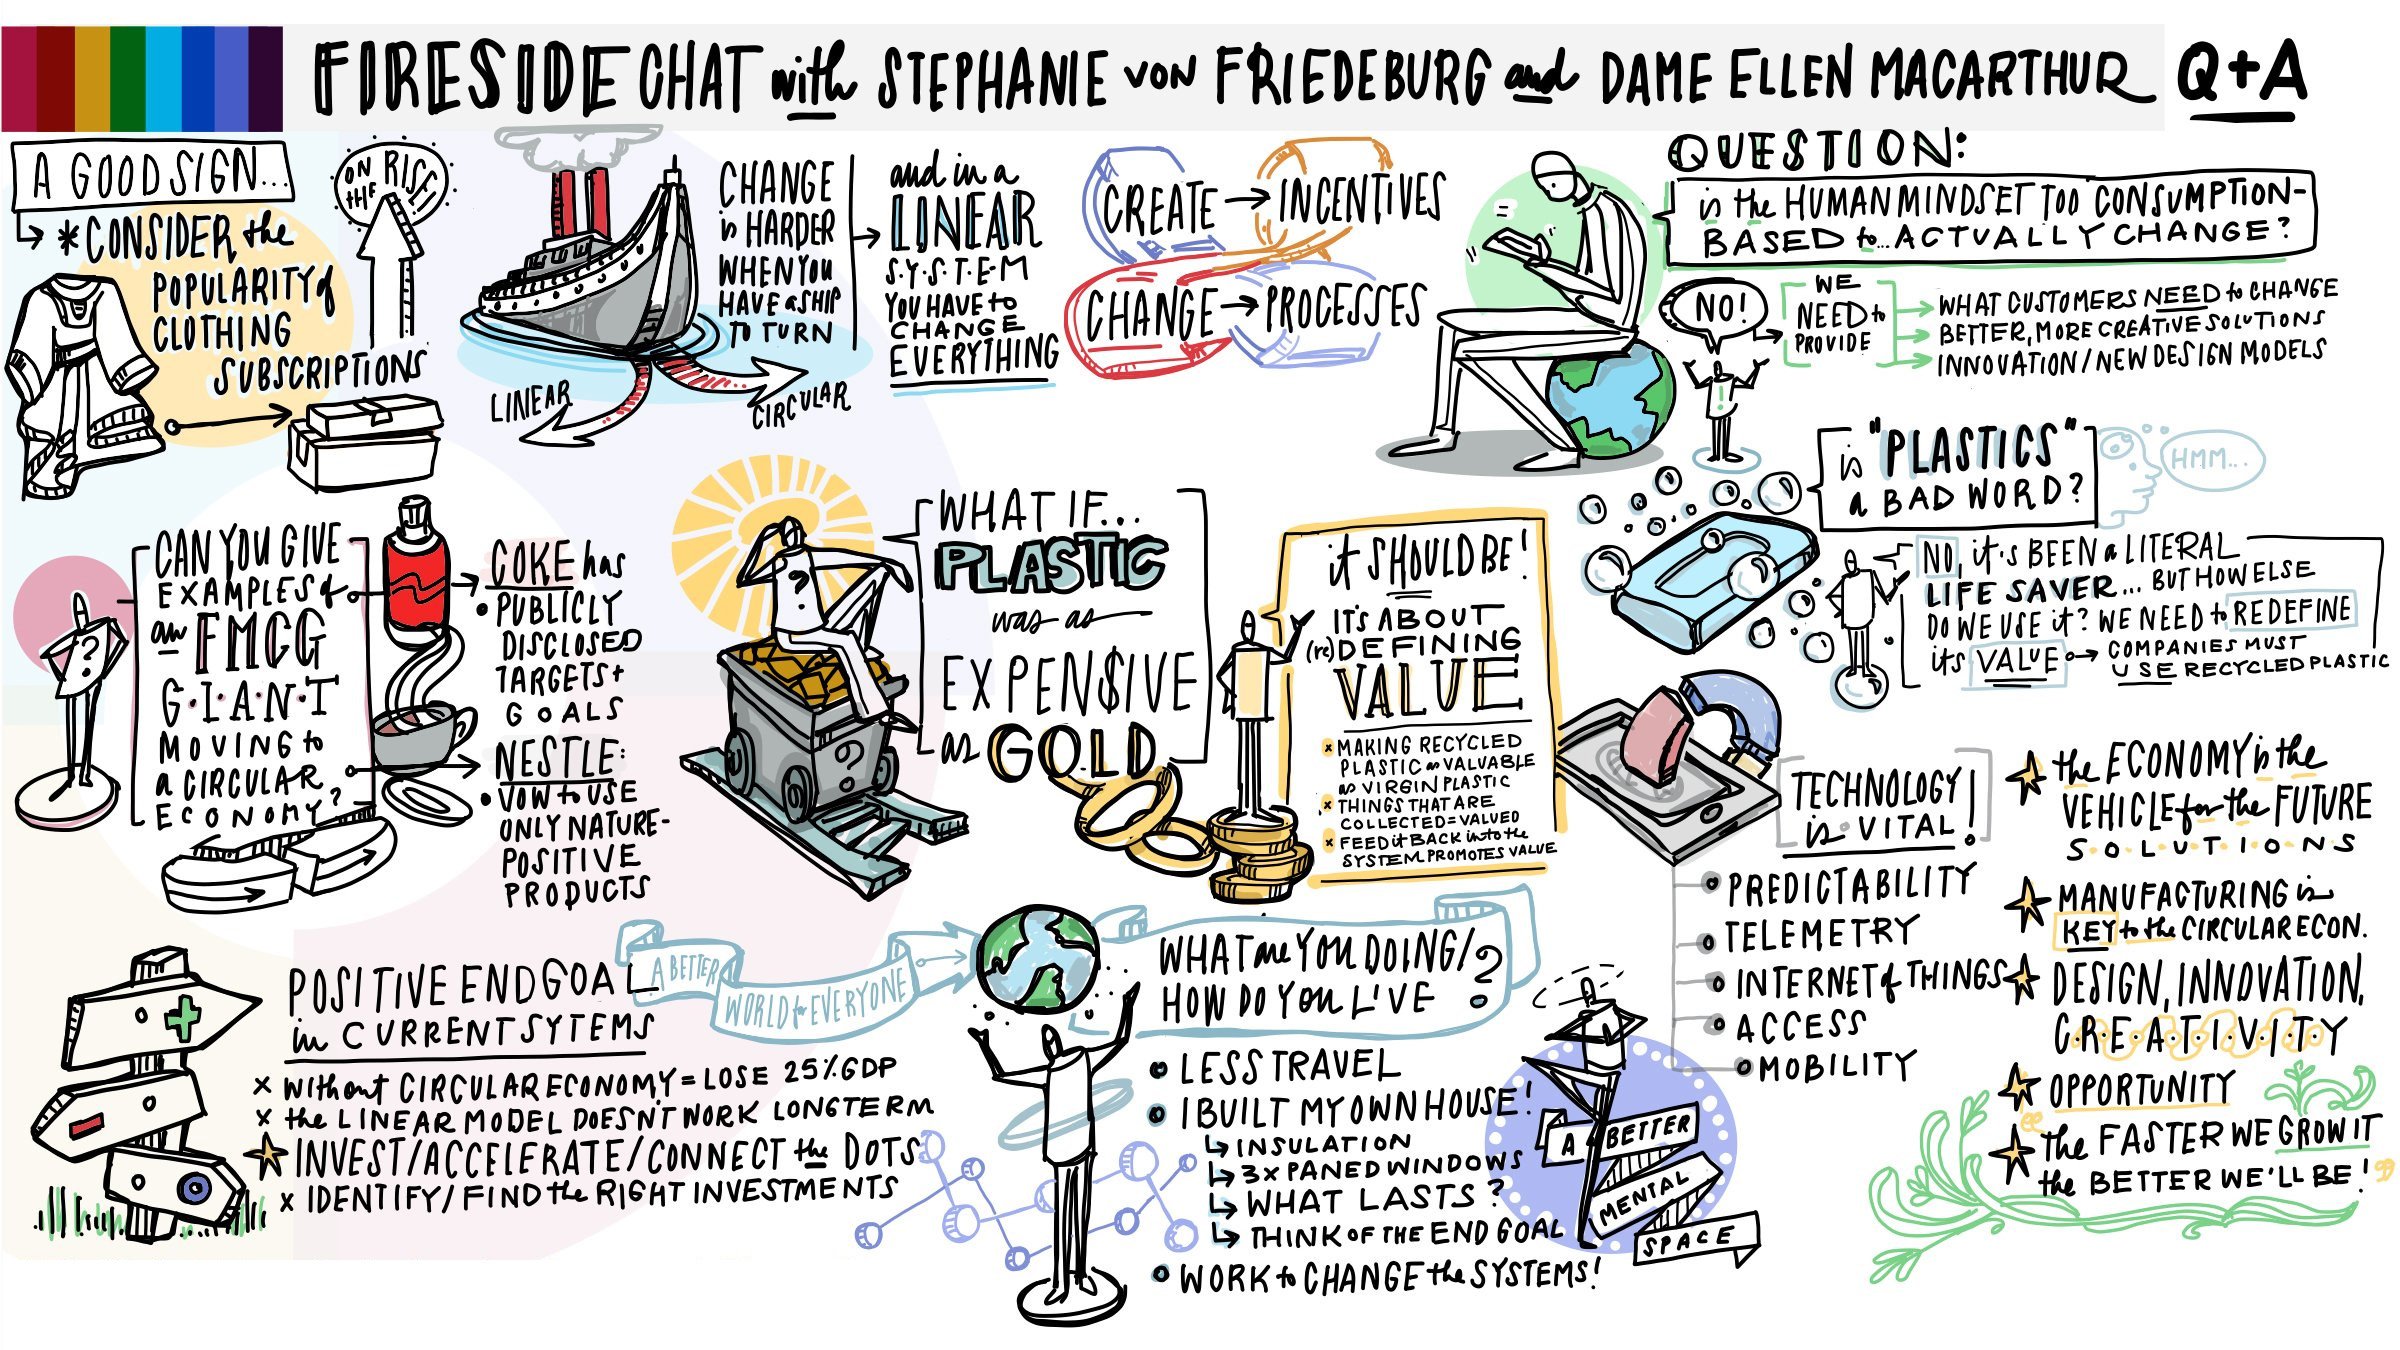 FIRESIDE CHAT with STEPHANIE VON FRIEDEBURG and DAME ELLEN MACARTHUR Q+A
A GOOD SIGN...
* CONSIDER the
POPULARITY of
CLOTHING
SUBSCRIPTIONS
ON
the RISE!
CHANGE
is HARDER
WHEN YOU
HAVE a SHIP
TO TURN
LINEAR
CIRCULAR
and in a
LINEAR
S.Y.S.T.E.M
YOU HAVE to
CHANGE
EVERYTHING
CREATE → INCENTIVES
CHANGE → PROCESSES
QUESTION:
is the HUMAN MINDSET TOO CONSUMPTION-
BASED to... ACTUALLY CHANGE?
NO!
WE
NEED to
PROVIDE
WHAT CUSTOMERS NEED to CHANGE
BETTER, MORE CREATIVE SOLUTIONS
INNOVATION/NEW DESIGN MODELS
is "PLASTICS"
a BAD WORD?
HMM...
NO, it's BEEN a LITERAL
LIFE SAVER... BUT HOW ELSE
DO WE USE it? WE NEED to REDEFINE
its VALUE → COMPANIES MUST
USE RECYCLED PLASTIC
CAN YOU GIVE
EXAMPLES of
an FMCG
G.I.A.N.T
MOVING to
a CIRCULAR
ECONOMY?
COKE has
• PUBLICLY
DISCLOSED
TARGETS +
GOALS
NESTLE:
• VOW to USE
ONLY NATURE-
POSITIVE
PRODUCTS
?
?
?
WHAT IF...
PLASTIC
was as
EXPEN$IVE
as GOLD
it SHOULD BE!
IT'S ABOUT
(re)DEFINING
VALUE
x MAKING RECYCLED
PLASTIC as VALUABLE
as VIRGIN PLASTIC
x THINGS THAT ARE
COLLECTED = VALUED
x FEED it BACK into the
SYSTEM PROMOTES VALUE
TECHNOLOGY
is VITAL!
PREDICTABILITY
TELEMETRY
INTERNET of THINGS
ACCESS
MOBILITY
the ECONOMY is the
VEHICLE for the FUTURE
S.O.L.U.T.I.O.N.S
MANUFACTURING is
KEY to the CIRCULAR ECON.
DESIGN, INNOVATION,
C.R.E.A.T.I.V.I.T.Y
OPPORTUNITY
"the FASTER WE GROW IT
the BETTER WE'LL BE!"
POSITIVE END GOAL
in CURRENT SYTEMS
A BETTER
WORLD for EVERYONE
x without CIRCULAR ECONOMY = LOSE 25% GDP
x the LINEAR MODEL DOESN'T WORK LONG TERM
INVEST/ACCELERATE/CONNECT the DOTS
x IDENTIFY/FIND the RIGHT INVESTMENTS
WHAT are YOU DOING/
HOW DO YOU LIVE?
• LESS TRAVEL
• I BUILT MY OWN HOUSE!
↳ INSULATION
↳ 3x PANED WINDOWS
↳ WHAT LASTS?
↳ THINK OF THE END GOAL
• WORK to CHANGE the SYSTEMS!
A BETTER
MENTAL
SPACE